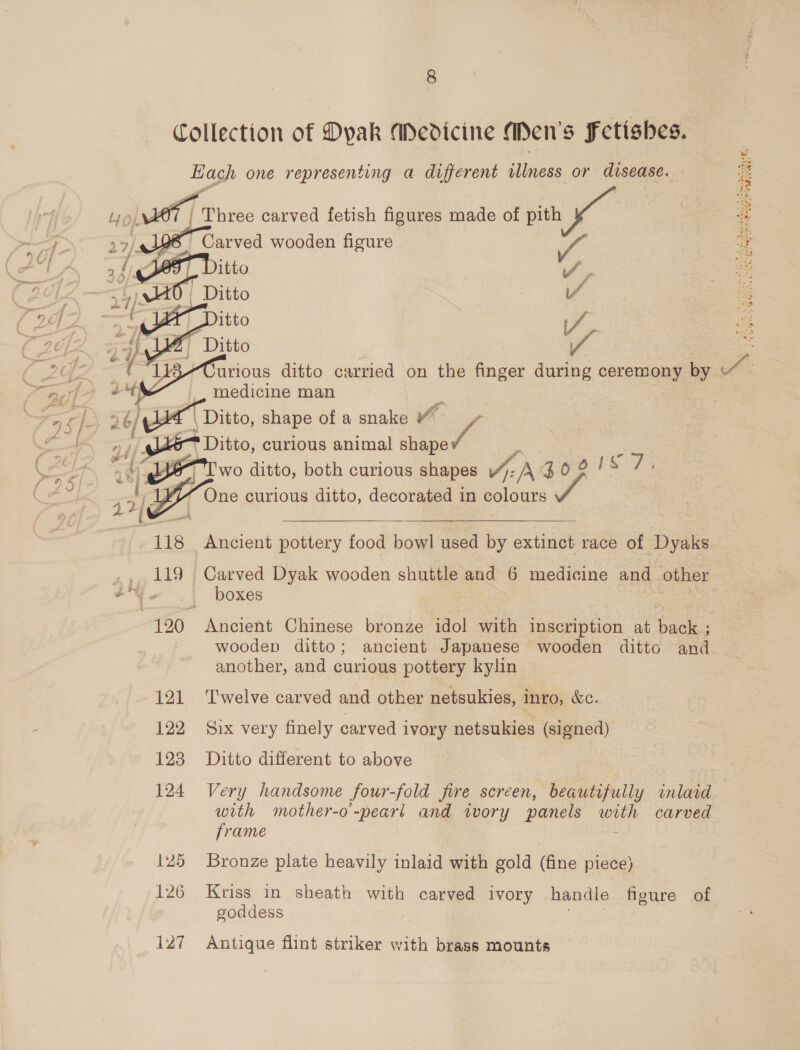 8
Collection of Dyak Medicine Men's Fetishes.
Each one representing a different illness or disease.
40/ 107 Three carved fetish figures made of pith
27/ 108 Carved wooden figure
109 Ditto
110 Ditto
111 Ditto
112 Ditto
113 Curious ditto carried on the finger during ceremony by
medicine man
26/ 114 Ditto, shape of a snake
115 Ditto, curious animal shape
116 Two ditto, both curious shapes
22/ 117 One curious ditto, decorated in colours
118 Ancient pottery food bowl used by extinct race of Dyaks
119 Carved Dyak wooden shuttle and 6 medicine and other
boxes
120 Ancient Chinese bronze idol with inscription at back ;
wooden ditto; ancient Japanese wooden ditto and
another, and curious pottery kylin
121 Twelve carved and other netsukies, inro, &c.
122 Six very finely carved ivory netsukies (signed)
123 Ditto different to above
124 Very handsome four-fold fire screen, beautifully inlaid
with mother-o'-pearl and ivory panels with carved
frame
125 Bronze plate heavily inlaid with gold (fine piece)
126 Kriss in sheath with carved ivory handle figure of
goddess
127 Antique flint striker with brass mounts